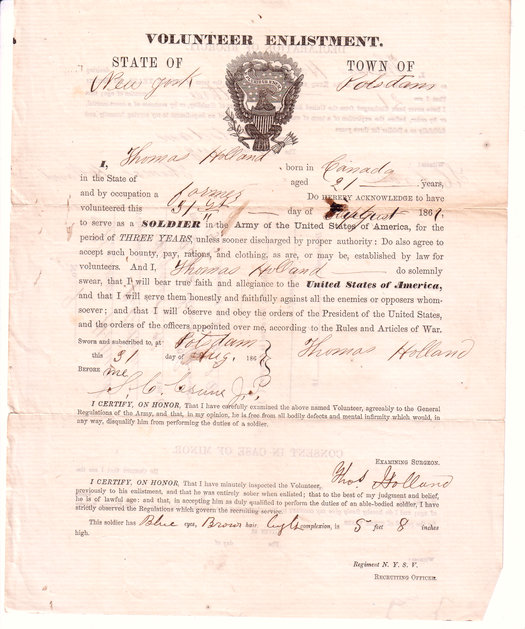 VOLUNTEER ENLISTMENT.
STATE OF TOWN OF
New York Potsdam
I, Thomas Holland born in Canada
in the State of aged 21 years,
and by occupation a Farmer Do HEREBY ACKNOWLEDGE to have
volunteered this 31st day of August 1861,
to serve as a SOLDIER in the Army of the United States of America, for the
period of THREE YEARS, unless sooner discharged by proper authority: Do also agree to
accept such bounty, pay, rations, and clothing, as are, or may be, established by law for
volunteers. And I, Thomas Holland do solemnly
swear, that I will bear true faith and allegiance to the United States of America,
and that I will serve them honestly and faithfully against all the enemies or opposers whom-
soever: and that I will observe and obey the orders of the President of the United States,
and the orders of the officers appointed over me, according to the Rules and Articles of War.
Sworn and subscribed to, at Potsdam
this 31 day of Aug. 186 Thomas Holland
BEFORE me
J.P.
I CERTIFY, ON HONOR, That I have carefully examined the above named Volunteer, agreeably to the General
Regulations of the Army, and that, in my opinion, he is free from all bodily defects and mental infirmity which would, in
any way, disqualify him from performing the duties of a soldier.
EXAMINING SURGEON.
I CERTIFY, ON HONOR, That I have minutely inspected the Volunteer, Thos Holland
previously to his enlistment, and that he was entirely sober when enlisted; that to the best of my judgment and belief,
he is of lawful age: and that, in accepting him as duly qualified to perform the duties of an able-bodied soldier, I have
strictly observed the Regulations which govern the recruiting service.
This soldier has Blue eyes, Brown hair, Light complexion, is 5 feet 8 inches
high.
Regiment N. Y. S. V.
RECRUITING OFFICER.